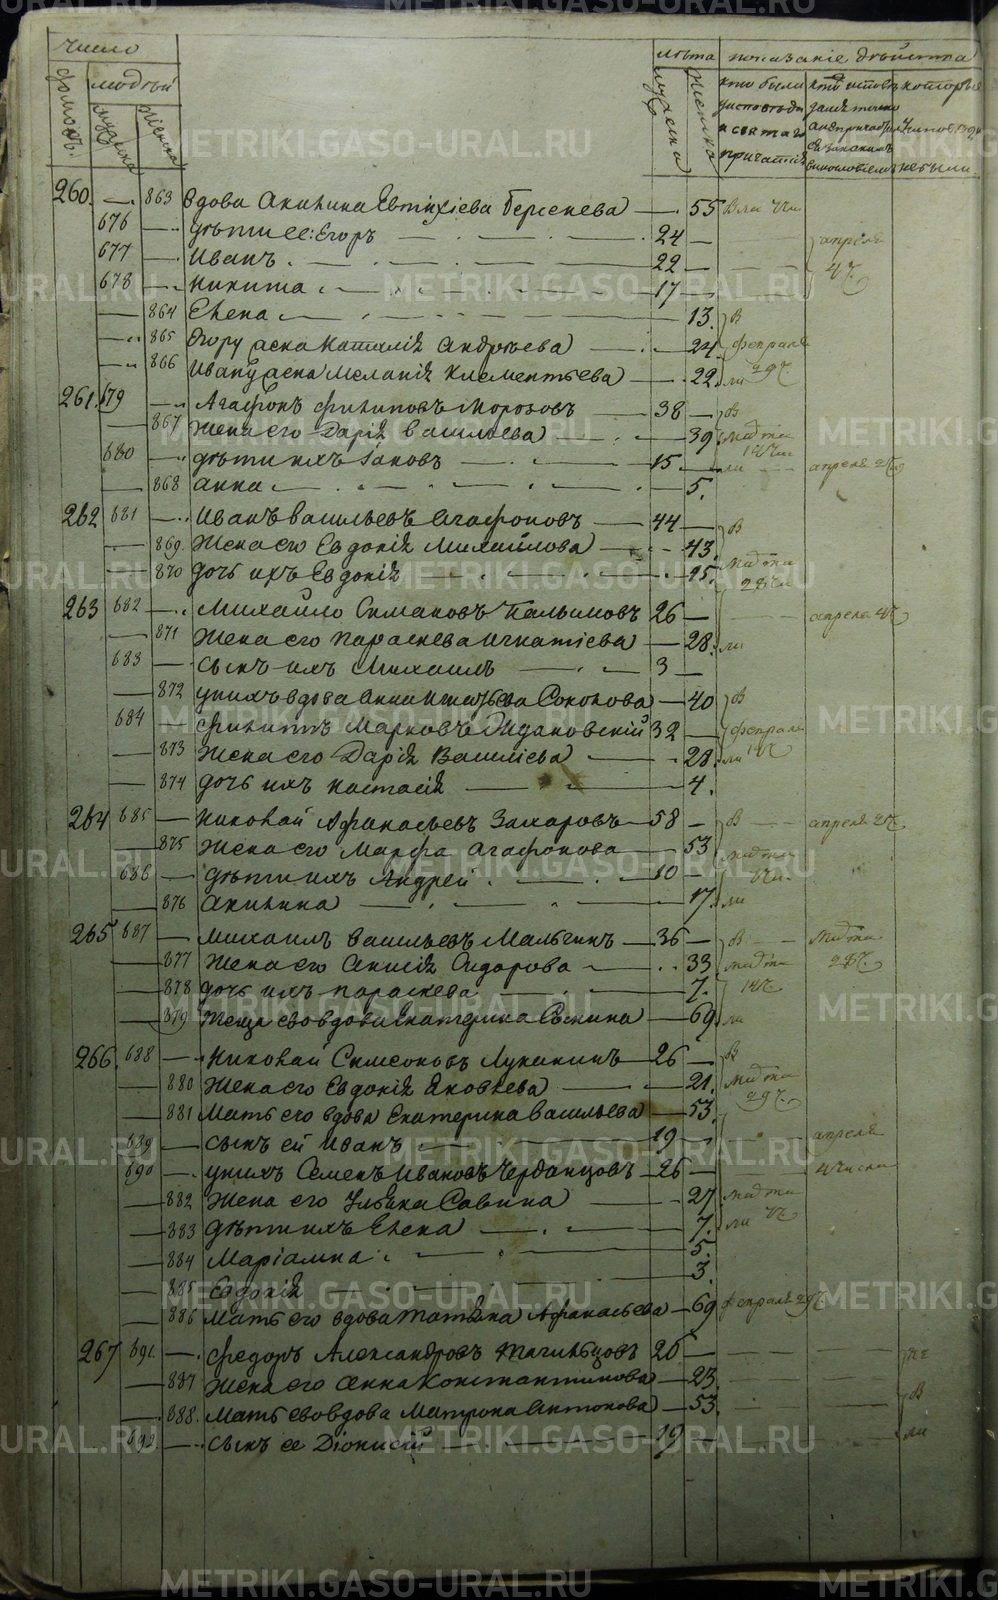 число
домовъ.
людей
мужска
женска
лѣта
мужска
женска
показаніе дѣйства
кто были у исповѣди и святаго причастія
которые
не были
260. — 863 вдова Акилина Евтихіева Берсенева — 55 Были
676 — дѣти ее: Егоръ — 24 — апреля
677 — Иванъ — 22 — 4г
678 — Никита — 17
— 864 Елена — 13. в
— 865 Егору жена Наталія Андрѣева — 24 февраля
— 866 Ивану жена Меланія Клементьева — 22. ли 29г
261. 679 — Агафонъ Филиповъ Морозовъ — 38 — в
— 867 Жена его Дарія Васильева — 39 марта
680 — дѣти ихъ Іаковъ — 15 — ли — апреля
— 868 Анна — 5.
262 681 — Иванъ Васильевъ Агафоновъ — 44 — в
— 869. Жена его Евдокія Михайлова — 43. марта
— 870 дочь ихъ Евдокія — 15.
263 682 — Михайло Симановъ Пальимовъ 26 — апреля 4г
— 871 Жена его Параскева Игнатіева — 28. ли
683 — сынъ ихъ Михаилъ — 3 —
— 872 у нихъ вдова Анна Игнатьева Соколова — 40 в
684 — Филиппъ Марковъ Ждановскій 32 — февраля
— 873 Жена его Дарія Василіева — 28. ли
— 874 дочь ихъ Настасія — 4.
264 685 — Николай Афанасьевъ Захаровъ — 58 — в — апреля
— 875 Жена его Марфа Агафонова — 53 марта
686 — дѣти ихъ Андрей — 10
— 876 Акилина — 17. ли
265 687 — Михаилъ Васильевъ Мальгинъ — 36 — в — марта
— 877 Жена его Анисія Сидорова — 33 марта
— 878 дочь ихъ Параскева — 7.
— 879 Теща его вдова Екатерина Савина — 69. ли
266. 688 — Николай Симеоновъ Лукакинъ — 26 — в
— 880 Жена его Евдокія Яковлева — 21. марта
— 881 Мать его вдова Екатерина Васильева — 53. 29г
689 — сынъ ей Иванъ — 19 — апреля
690 — у нихъ Семенъ Ивановъ Черданцовъ — 26 — 4 числа
— 882 Жена его Ульяна Савина — 27 марта
— 883 дѣти ихъ Елена — 7. ли
— 884 Маріамна — 5.
— 885 Евдокія — 3.
— 886 Мать его вдова Татьяна Афанасьева — 69 февраля 29г
267 691. — Федоръ Александровъ Тагильцовъ 26 — не
— 887 Жена его Анна Константинова — 23. —
— 888. Мать его вдова Матрона Антонова — 53. — в
692. — сынъ ее Діонисій — 19 — ли
METRIKI.GASO-URAL.RU